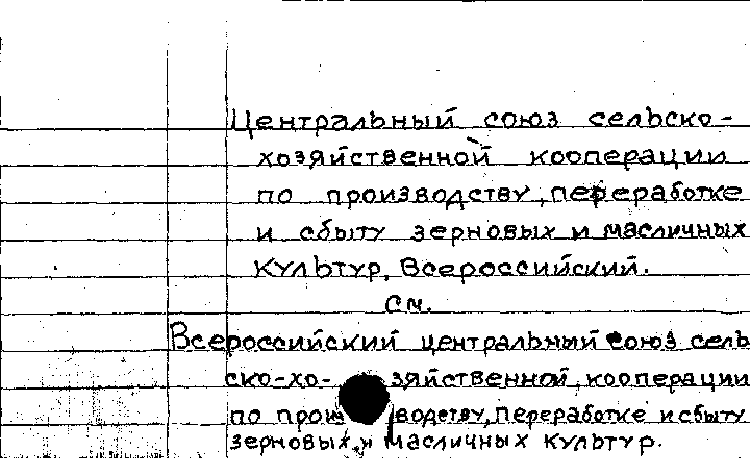 Центральный союз сельско-
хозяйственной кооперации
по производству, переработке
и сбыту зерновых и масличных
культур, Всероссийский.
см.
Всероссийский центральный союз сель
ско-хо- зяйственной, кооперации
по произ водству, переработке и сбыту
зерновых и масличных культур.